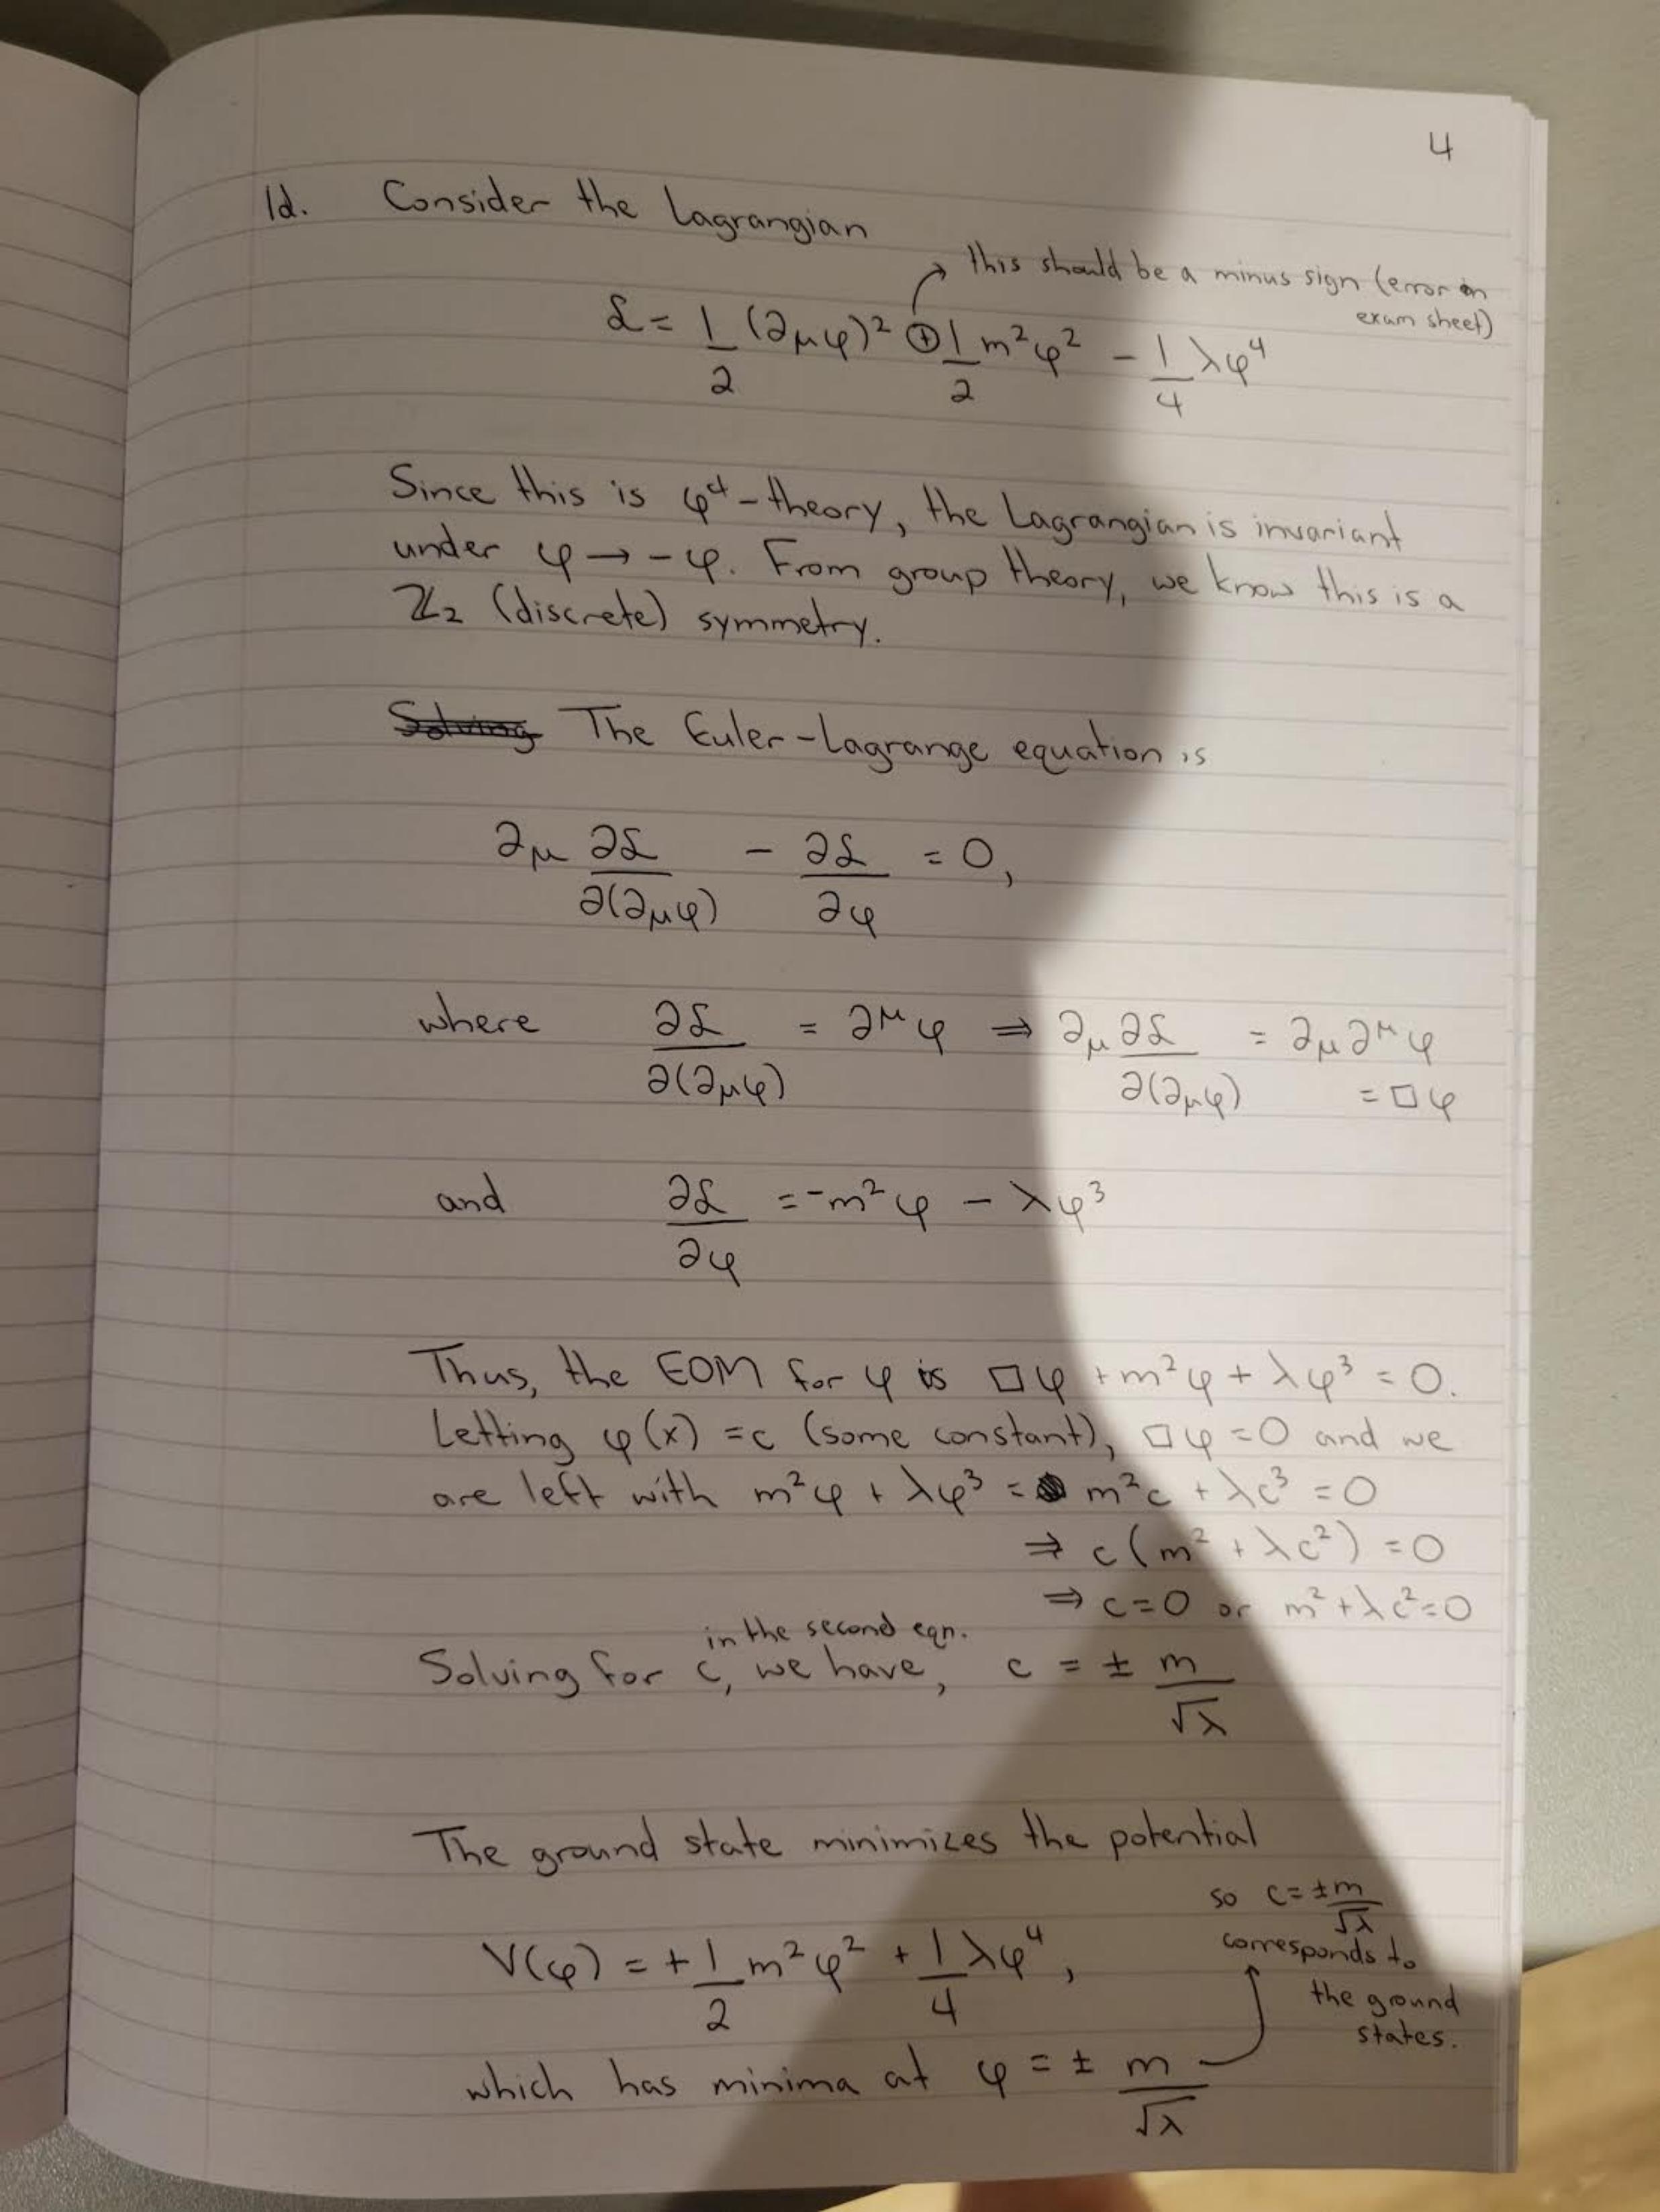 4
1d. Consider the Lagrangian
this should be a minus sign (error on
exam sheet)
ℒ = 1/2 (∂μφ)² ⊕ 1/2 m²φ² - 1/4 λφ⁴
Since this is φ⁴-theory, the Lagrangian is invariant
under φ → -φ. From group theory, we know this is a
ℤ₂ (discrete) symmetry.
The Euler-Lagrange equation is
∂μ ∂ℒ/∂(∂μφ) - ∂ℒ/∂φ = 0,
where ∂ℒ/∂(∂μφ) = ∂^μφ ⇒ ∂μ ∂ℒ/∂(∂μφ) = ∂μ∂^μφ
= □φ
and ∂ℒ/∂φ = -m²φ - λφ³
Thus, the EOM for φ is □φ + m²φ + λφ³ = 0.
Letting φ(x) = c (some constant), □φ = 0 and we
are left with m²φ + λφ³ = m²c + λc³ = 0
⇒ c(m² + λc²) = 0
⇒ c = 0 or m² + λc² = 0
in the second eqn.
Solving for c, we have, c = ± m/√λ
The ground state minimizes the potential
V(φ) = + 1/2 m²φ² + 1/4 λφ⁴,
which has minima at φ = ± m/√λ
so c = ±m/√λ
corresponds to
the ground
states.